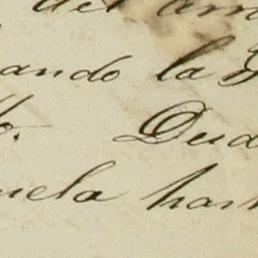 del am
ando la
lo. Dud
uela has